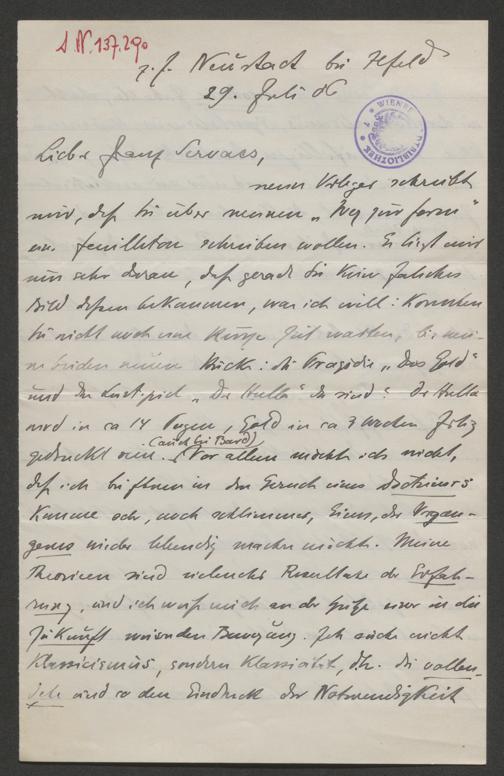 J. N. 137.290
z. Z. Neustadt bei Ilfeld
29. Juli 06
WIENER STADTBIBLIOTHEK
Lieber Franz Servaes,
mein Verleger schreibt
mir, daß Sie über meinen „Weg zur Form"
ein Feuilleton schreiben wollen. Es liegt mir
nun sehr daran, daß gerade Sie kein falsches
Bild dessen bekommen, was ich will: Könnten
Sie nicht noch eine kurze Zeit warten, bis mei-
ne beiden neuen Stücke: die Tragödie „Das Gold"
und das Lustspiel „Die Hulla" da sind? Die Hulla
wird in ca 14 Tagen, Gold in ca 3 Wochen fertig
(auch bei Bard)
gedruckt sein. Vor allem möchte ich nicht,
daß ich bei Ihnen in den Geruch eines Doctrinärs
komme oder, noch schlimmer, Eines, der Vergan-
genes wieder lebendig machen möchte. Meine
Theorieen sind vielmehr Resultate der Erfah-
rung, und ich weiß mich an der Spitze einer in die
Zukunft weisenden Bewegung. Ich suche nicht
Klassicismus, sondern Klassicität, d.h. die vollen-
dete und so den Eindruck der Notwendigkeit